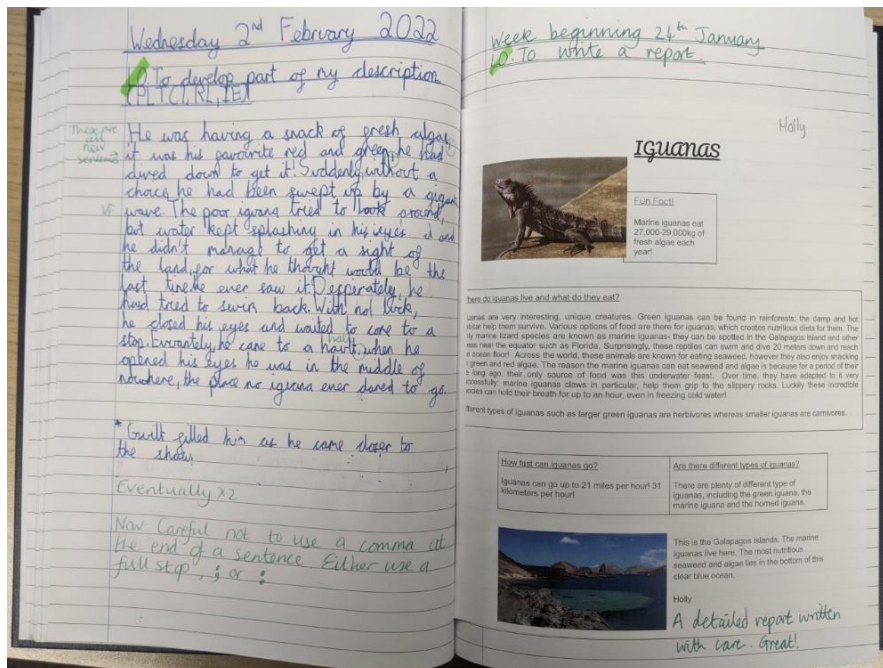 Wednesday 2nd February 2022
LO To develop part of my description
(PLTCT, RL, IE)
These are all new sentences
He was having a snack of fresh algae,
it was his favourite red and green, he had
dived down to get it. Suddenly, without a
choice he had been swept up by a
VF
wave. The poor iguana tried to look around,
but water kept splashing in his eyes and
he didn't manage to get a sight of
the land, for what he thought would be the
last time he ever saw it. Desperately, he
had tried to swim back. With no luck,
he closed his eyes and waited to come to a
halt
stop. he came to a when he
opened his eyes he was in the middle of
nowhere, the place no iguana ever dared to go.
*Guilt filled him as he came closer to
the
Eventually x2
Now Careful not to use a comma at
the end of a sentence. Either use a
full stop, ; or :
Week beginning 24th January
LO: To write a report.
Holly
IGUANAS
Fun Fact!
Marine iguanas eat
27,000-29,000kg of
fresh algae each
year!
here do iguanas live and what do they eat?
uanas are very interesting, unique creatures. Green iguanas can be found in rainforests; the damp and hot
bitat help them survive. Various options of food are there for iguanas, which creates nutritious diets for them. The
ly marine lizard species are known as marine iguanas- they can be spotted in the Galapagos Island and other
ees near the equator such as Florida. Surprisingly, these reptiles can swim and dive 20 meters down and reach
e ocean floor! Across the world, those animals are known for eating seaweed, however they also enjoy snacking
green and red algae. The reason the marine iguanas can eat seaweed and algae is because for a period of their
s long ago, their only source of food was this underwater feast.. Over time, they have adapted to it very
ccessfully; marine iguanas claws in particular, help them grip to the slippery rocks. Luckily these incredible
ecies can hold their breath for up to an hour, even in freezing cold water!
fferent types of iguanas such as larger green iguanas are herbivores whereas smaller iguanas are carnivores.
How fast can iguanas go?
Iguanas can go up to 21 miles per hour! 31
kilometers per hour!
Are there different types of iguanas?
There are plenty of different type of
iguanas, including the green iguana, the
marine iguana and the horned iguana.
This is the Galapagos Islands. The marine
iguanas live here. The most nutritious
seaweed and algae lies in the bottom of this
clear blue ocean.
Holly
A detailed report written
with care. Great!